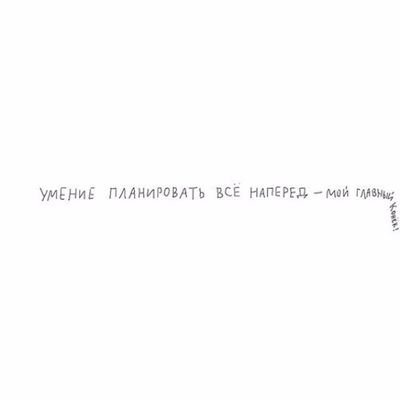 УМЕНИЕ ПЛАНИРОВАТЬ ВСЁ НАПЕРЕД – МОЙ ГЛАВНЫЙ КОНЁК!